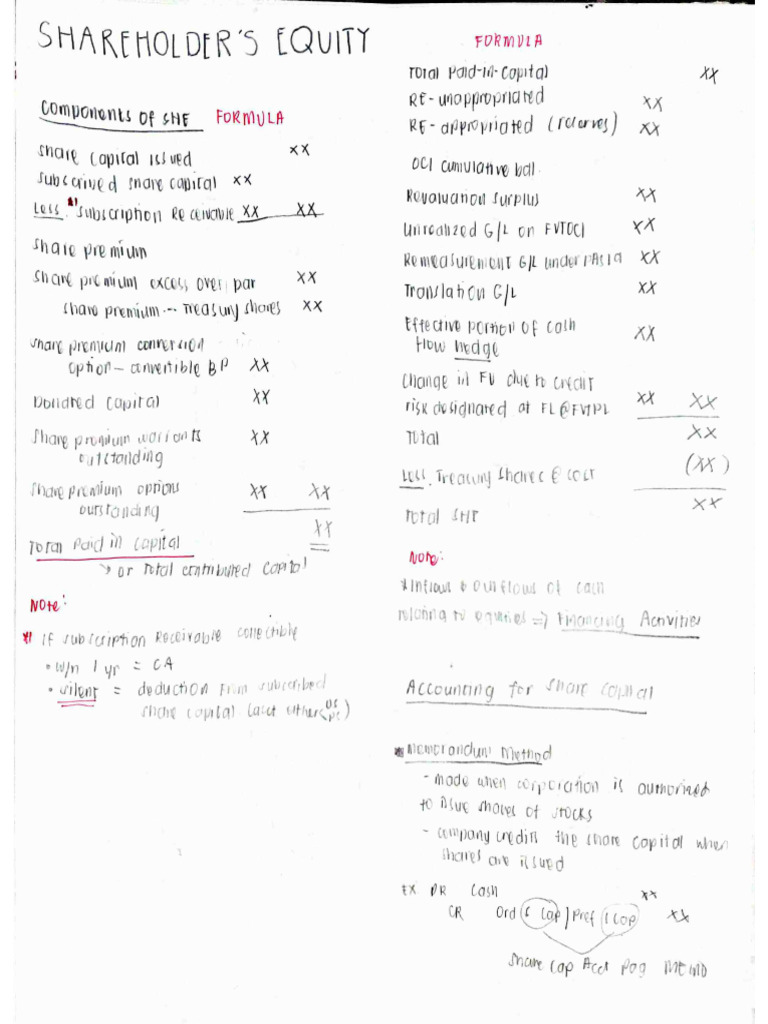 SHAREHOLDER'S EQUITY
Components of SHE FORMULA
Share Capital Issued xx
Subscrived Share Capital xx
Less *1 Subscription Receivable xx xx
Share premium
Share premium excess over par xx
Share premium -- Treasury Shares xx
Share premium conversion
option - convertible BP xx
Donated Capital xx
Share premium warrants xx
outstanding
Share premium options xx xx
outstanding
xx
Total Paid in Capital
↳ or Total contributed Capital
Note:
*1 If subscription Receivable collectible
• w/n 1 yr = CA
• silent = deduction from subscribed
share capital (acct either OS PS)
FORMULA
Total Paid-in-Capital xx
RE-unappropriated xx
RE-appropriated (reserves) xx
OCI cumulative bal.
Revaluation Surplus xx
Unrealized G/L on FVTOCI xx
Remeasurement G/L under PAS19 xx
Translation G/L xx
Effective portion of cash
flow hedge xx
Change in FV due to credit
risk designated at FL@FVTPL xx xx
Total xx
Less. Treasury Shares @ cost (xx)
Total SHE xx
Note:
* Inflows & outflows of cash
relating to equities => Financing Activities
Accounting for Share Capital
* Memorandum Method
- made when corporation is authorized
to issue shares of stocks
- company credits the share capital when
shares are issued
EX DR Cash xx
CR Ord S Cap | Pref S Cap xx
Share Cap Acct pag MEMO